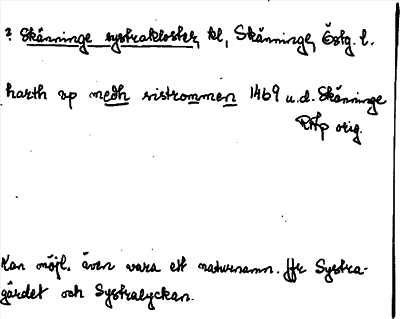 ? Skänninge systrakloster, kl, Skänninge, Östg. l.
harth vp medh sistrommen 1469 u.d. Skänninge
RAp orig.
Kan möjl. även vara ett naturnamn. Jfr Systra-
gärdet och Systralyckan.